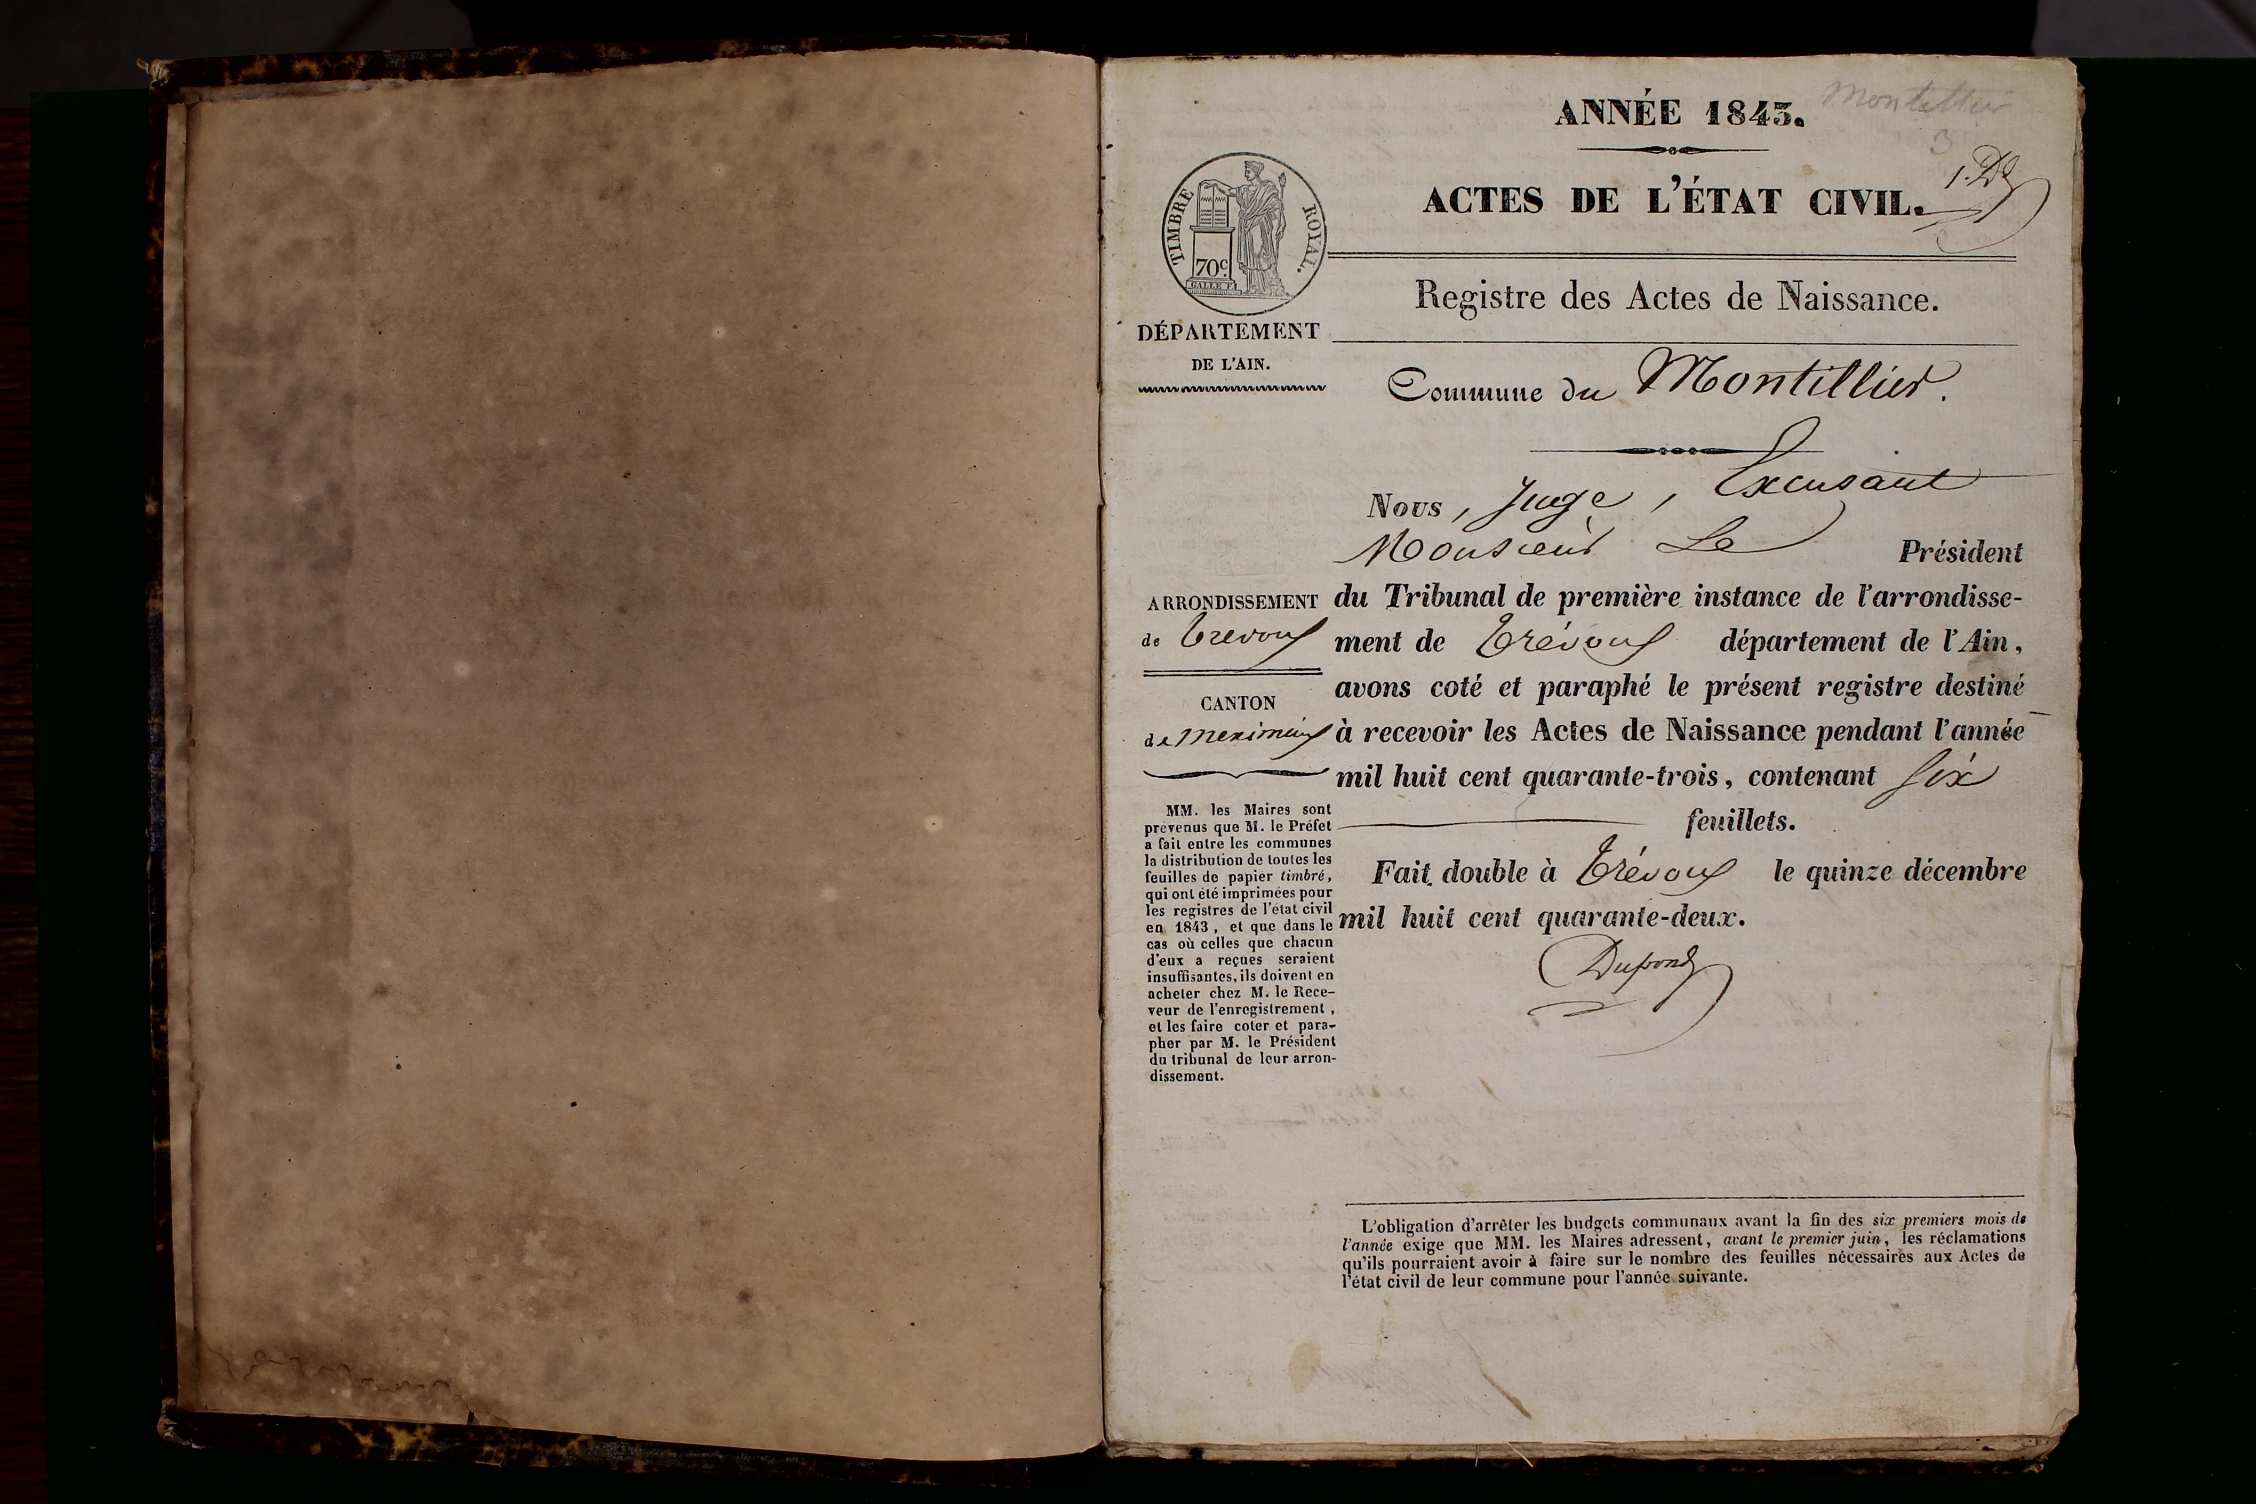 Montellier
3
ANNÉE 1843.
1. Dd
ACTES DE L'ÉTAT CIVIL.
TIMBRE ROYAL.
70c.
GALLE F.
Registre des Actes de Naissance.
DÉPARTEMENT
DE L'AIN.
Commune du Montillier.
Nous, Juge, Excusant
Monsieur Le Président
du Tribunal de première instance de l'arrondisse-
ment de Trévoux département de l'Ain,
avons coté et paraphé le présent registre destiné
à recevoir les Actes de Naissance pendant l'année
mil huit cent quarante-trois, contenant six
feuillets.
Fait double à Trévoux le quinze décembre
mil huit cent quarante-deux.
Dupond
ARRONDISSEMENT
de Trevoux
CANTON
de Meximieux
MM. les Maires sont
prévenus que M. le Préfet
a fait entre les communes
la distribution de toutes les
feuilles de papier timbré,
qui ont été imprimées pour
les registres de l'état civil
en 1843, et que dans le
cas où celles que chacun
d'eux a reçues seraient
insuffisantes, ils doivent en
acheter chez M. le Rece-
veur de l'enregistrement,
et les faire coter et para-
pher par M. le Président
du tribunal de leur arron-
dissement.
L'obligation d'arrêter les budgets communaux avant la fin des six premiers mois de
l'année exige que MM. les Maires adressent, avant le premier juin, les réclamations
qu'ils pourraient avoir à faire sur le nombre des feuilles nécessaires aux Actes de
l'état civil de leur commune pour l'année suivante.